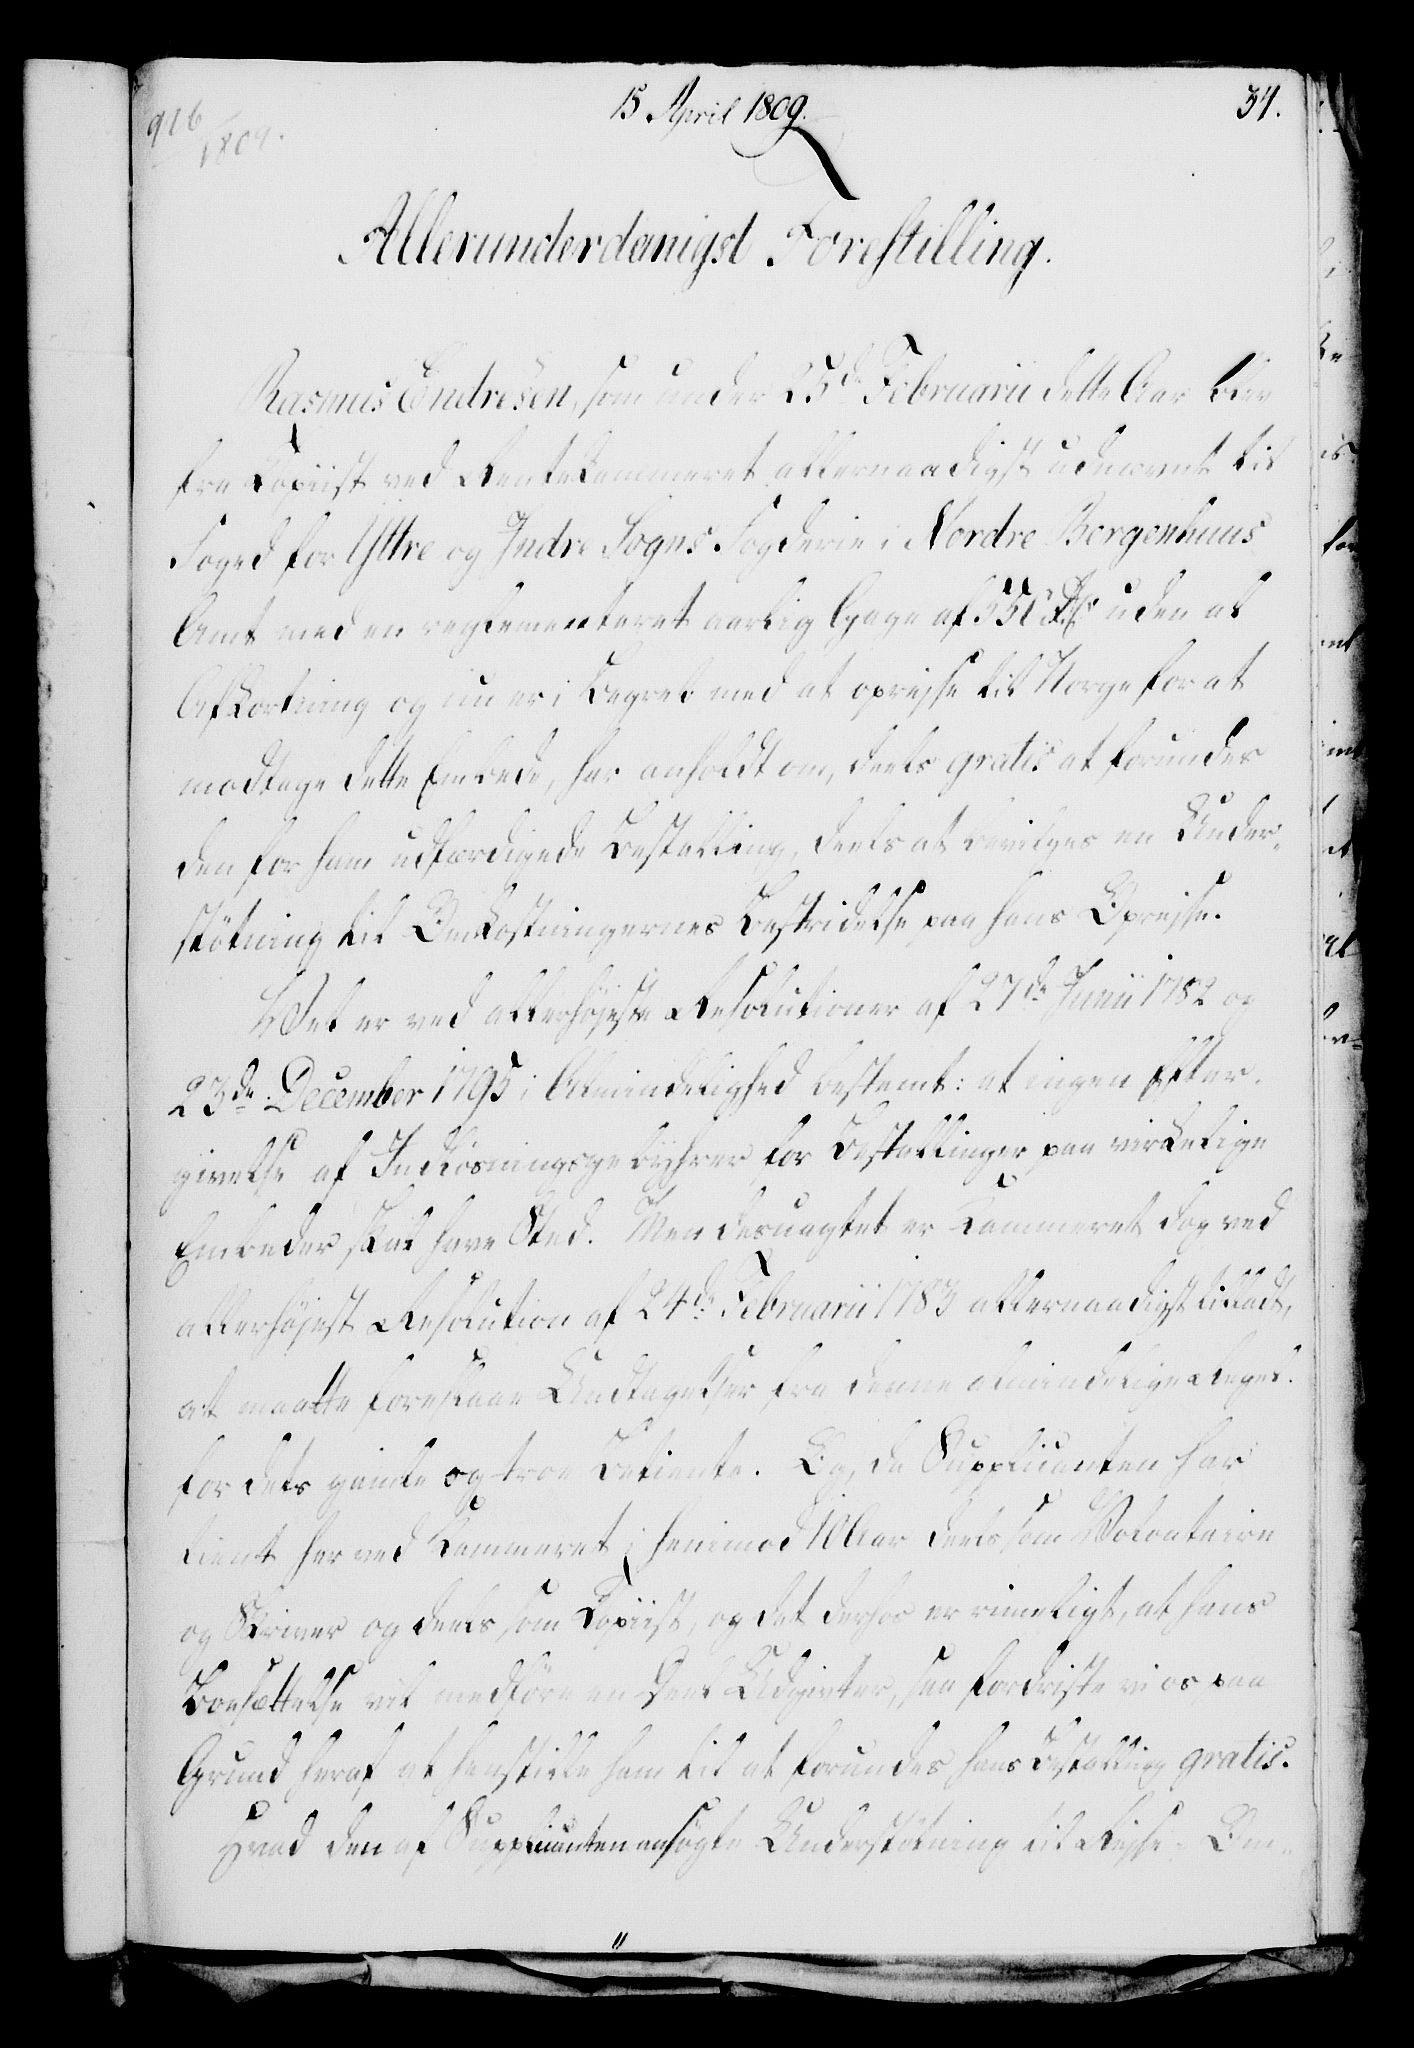 916
1809.
15 April 1809.
34.
Allerunderdanigst Forestilling.
Rasmus Endresen, som under 25de Februarii dette Aar blev
fra Copiist ved Rentekammeret allernaadigst udnævnt til
Foged for Yttre og Indre Sogns Fogderie i Nordre Bergenhuus
Amt med en reglementeret aarlig Gage af 550 Rdr uden al
Afkortning og nu er i Begreb med at oprejse til Norge for at
modtage dette Embede, har anholdt om, deels gratis at forundes
den for ham udfærdigede Bestalling, deels at bevilges en Under-
støtning til Omkostningernes Bestridelse paa hans Oprejse.
Vel er ved allerhøjeste Resolutioner af 27de Junii 1782 og
23de December 1795 i Almindelighed bestemt: at ingen Efter-
givelse af Indløsningsgebyhrer for Bestallinger paa virkelige
Embeder skal have Sted. Men desuagtet er Kammeret dog ved
allerhøjest Resolution af 24de Februarii 1783 allernaadigst tilladt,
at maatte foreslaae Undtagelser fra denne almindelige Regel
for dets gamle og troe Betiente. Og, da Supplicanten har
tient her ved Kammeret i henimod 10 Aar deels som Volontaire
og Skriver og deels som Copiist, og det derhos er rimeligt, at hans
Bosættelse vil medføre en Deel Udgivter, saa fordriste vi os paa
Grund heraf at henstille ham til at forundes hans Bestalling gratis.
Hvad den af Supplicanten ansøgte Understøtning til Rejse-Om-